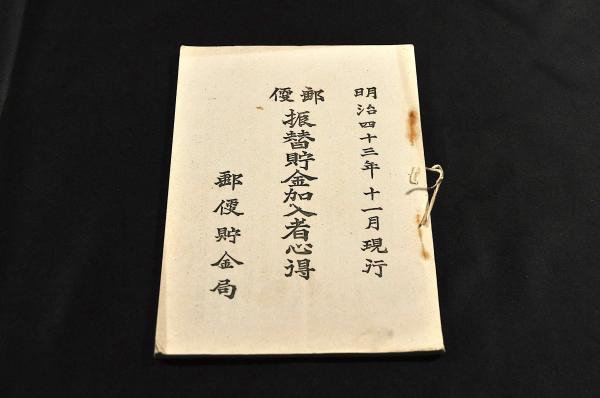 明治四十三年十一月現行
郵便
振替貯金加入者心得
郵便貯金局